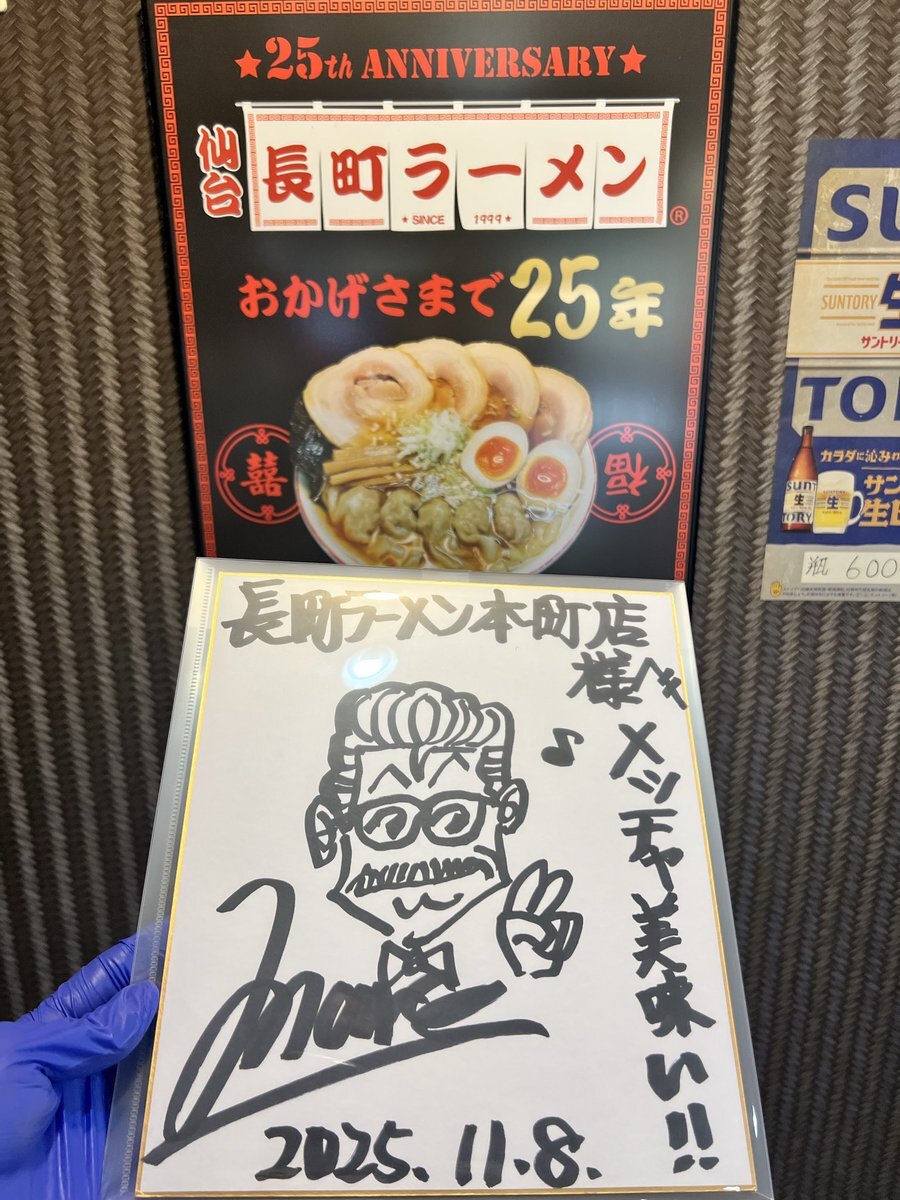 ★25th ANNIVERSARY★
仙台
長町ラーメン
★SINCE 1999★
®
おかげさまで25年
囍
福
SUNTORY
生
サントリー
カラダに沁み
サン
生ビ
SUNTORY
生
瓶 600
長町ラーメン本町店
様へ
メッチャ美味い!!
2025.11.8.